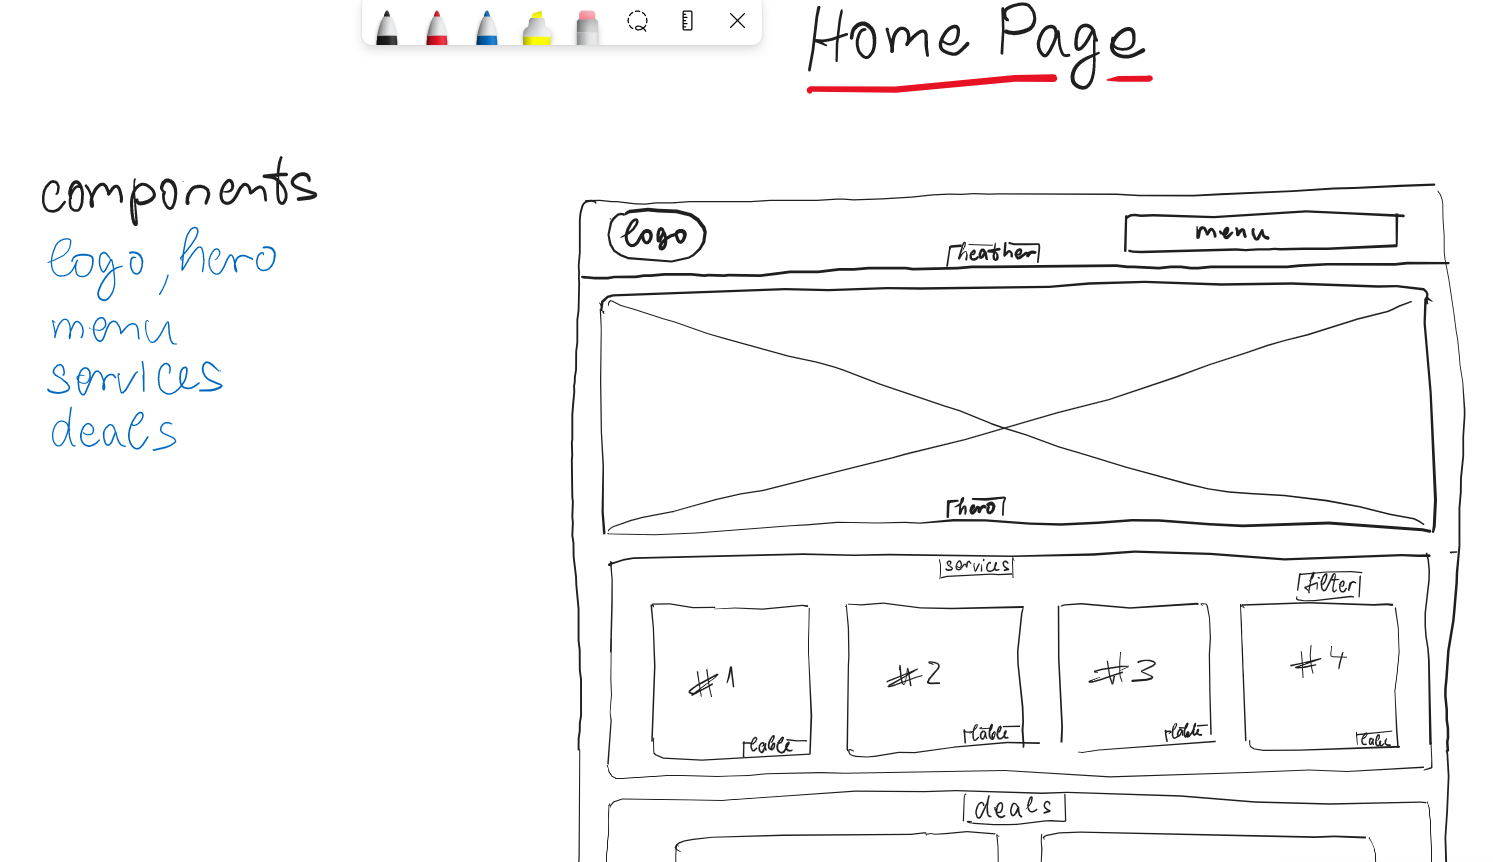 Home Page
components
logo, hero
menu
services
deals
logo
menu
heather
hero
services
filter
#1
#2
#3
#4
lable
lable
lable
lable
deals